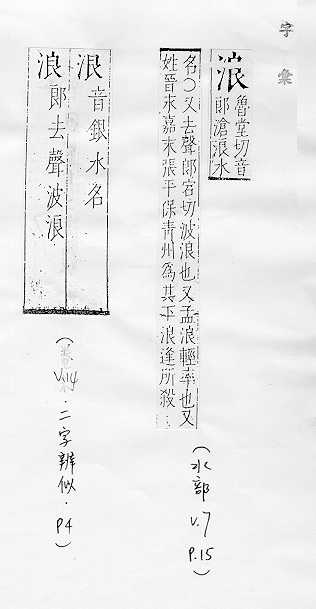 字彙
浪魯堂切音
郎滄浪水
名○又去聲郎宕切波浪也又孟浪輕率也又
姓晉永嘉末張平保青州爲其下浪逢所殺…
(水部 V.7 P.15)
泿音銀水名
浪郎去聲波浪
(V.14.二字辨似.P4)